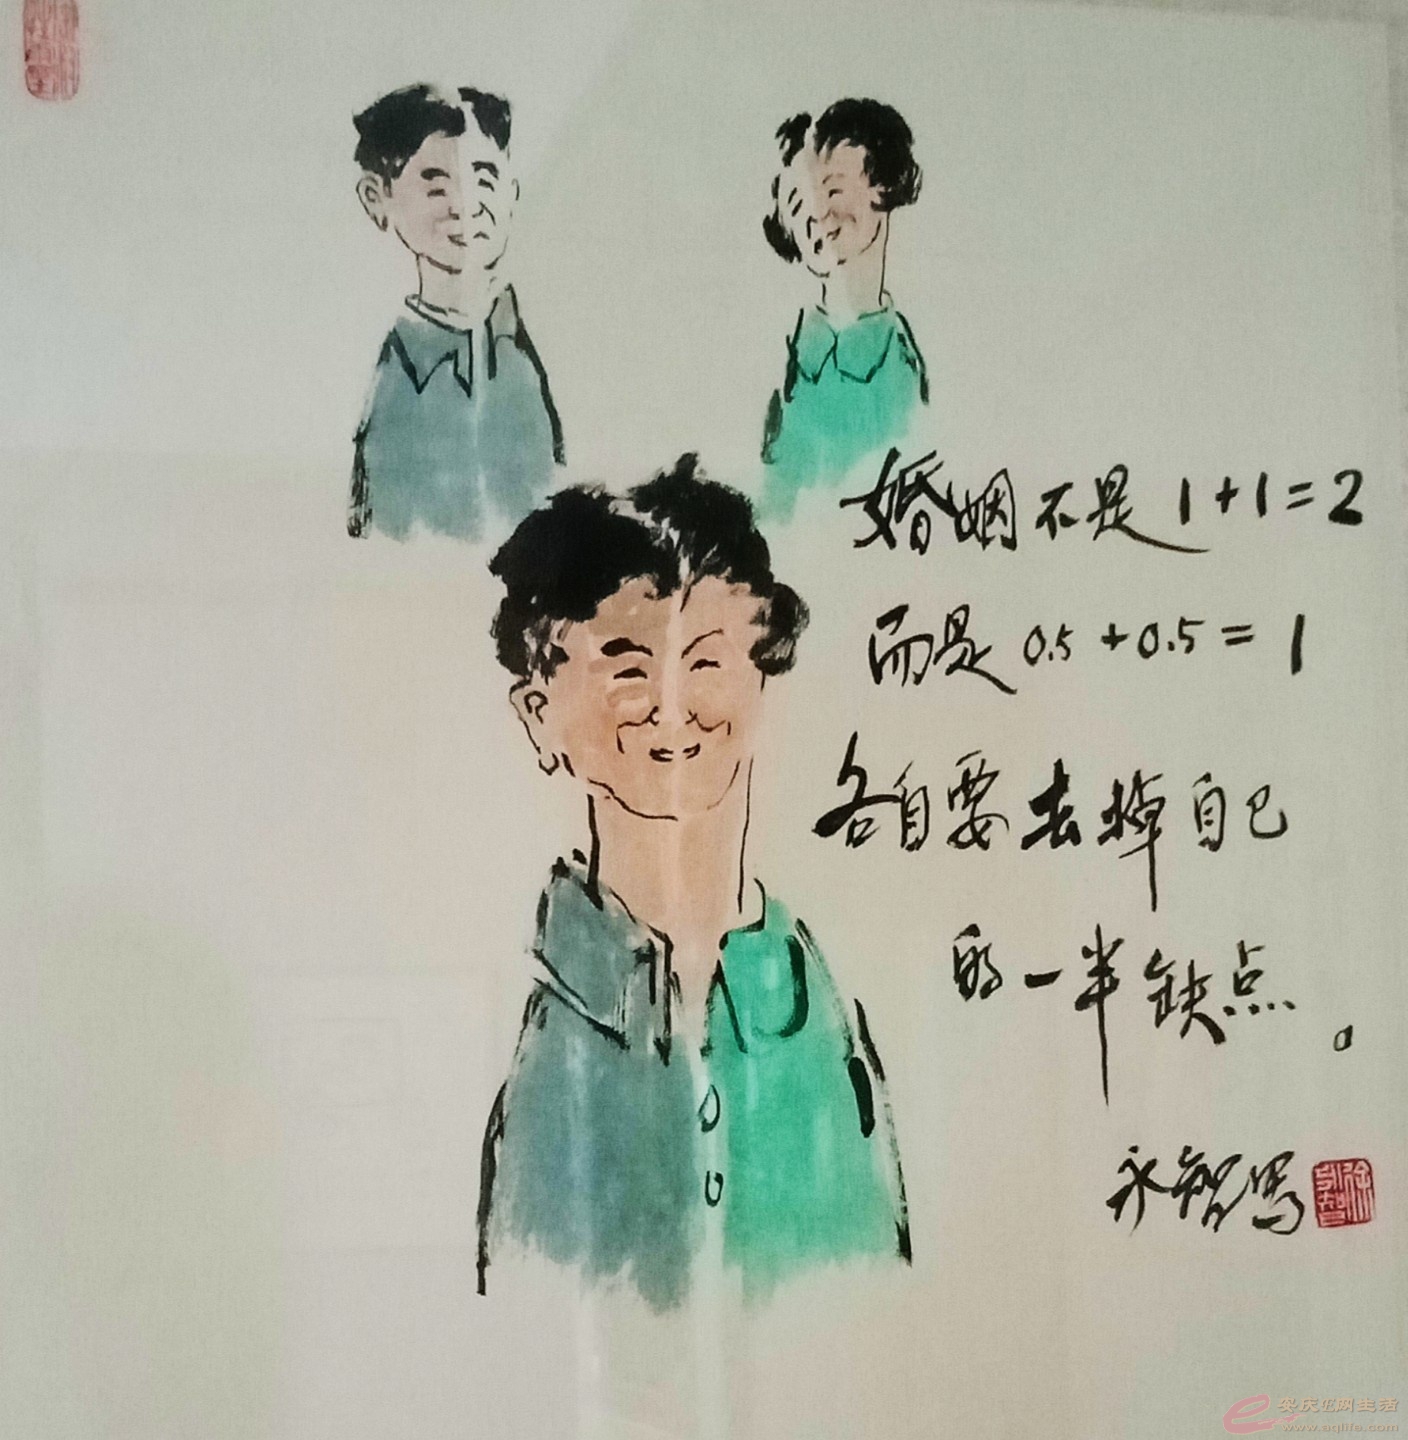 婚姻不是1+1=2
而是0.5+0.5=1
各自要去掉自己
的一半缺点。
永智写
安庆E网生活
www.aqlife.com